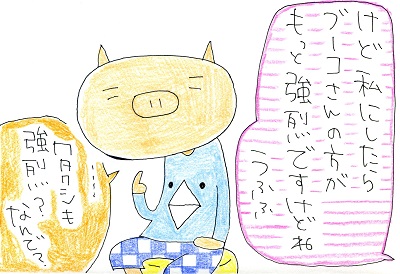 けど私にしたら
ブーコさんの方が
もっと強烈ですけどね
うふふ
……
ワタクシも
強烈？
なんで？